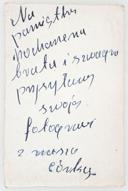 Na
pamiątkę
kochanemu
bratu i szwagru
przysyłamy
swoją
fotografi
z naszą
córką